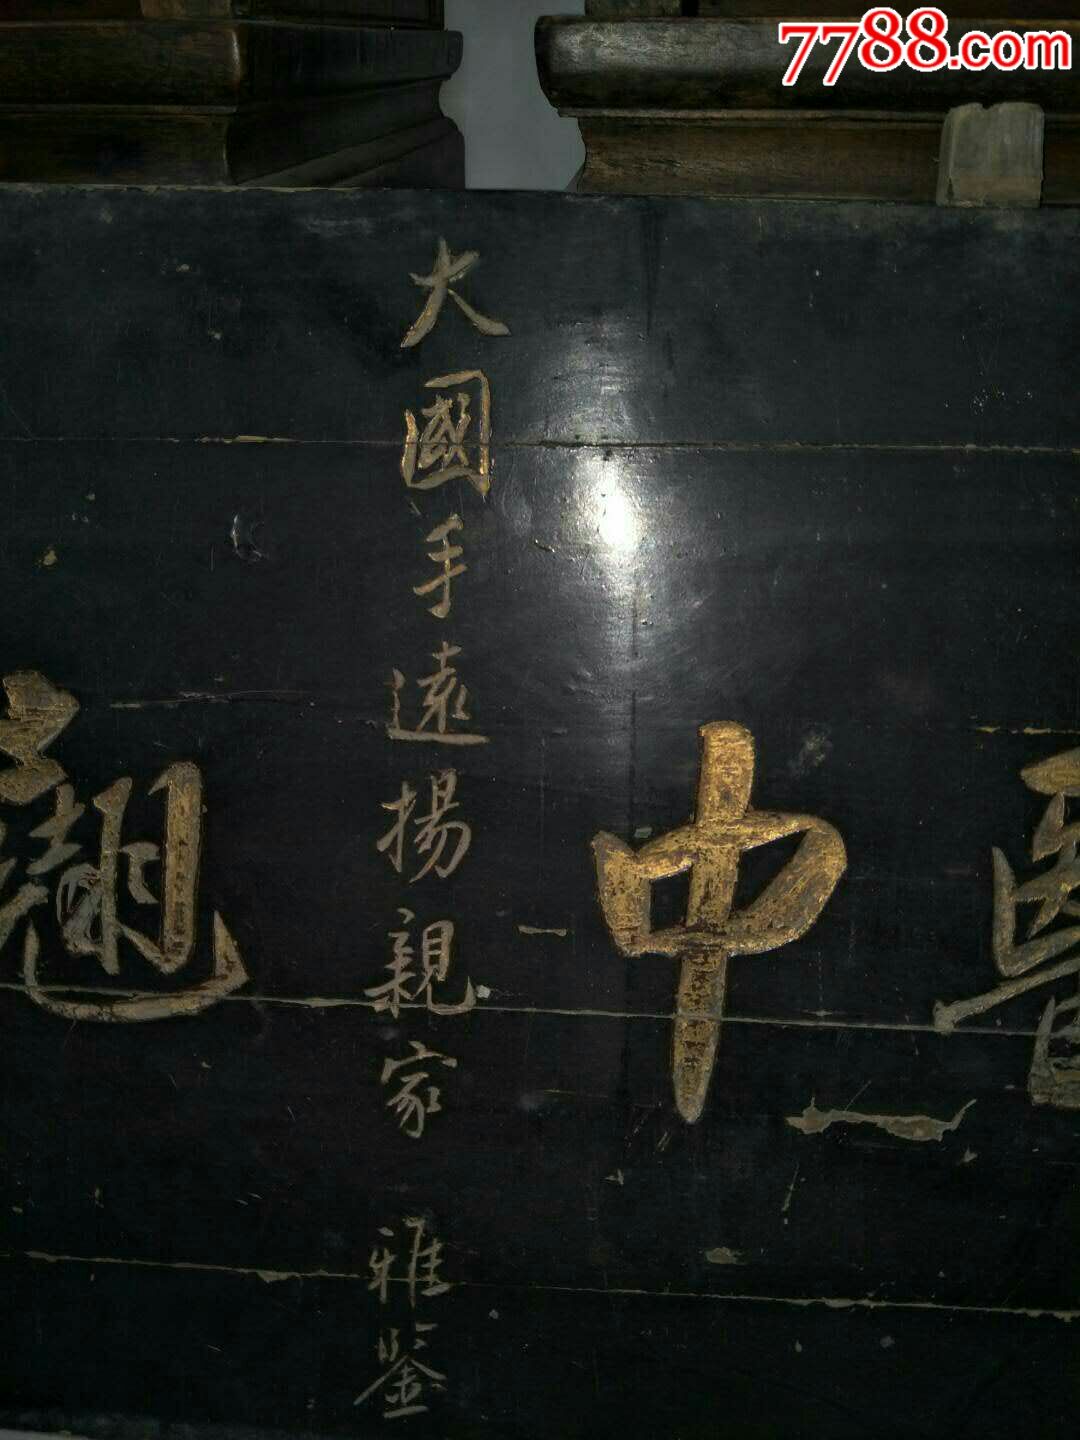 7788.com
醫中
大國手遠揚親家 雅鑒